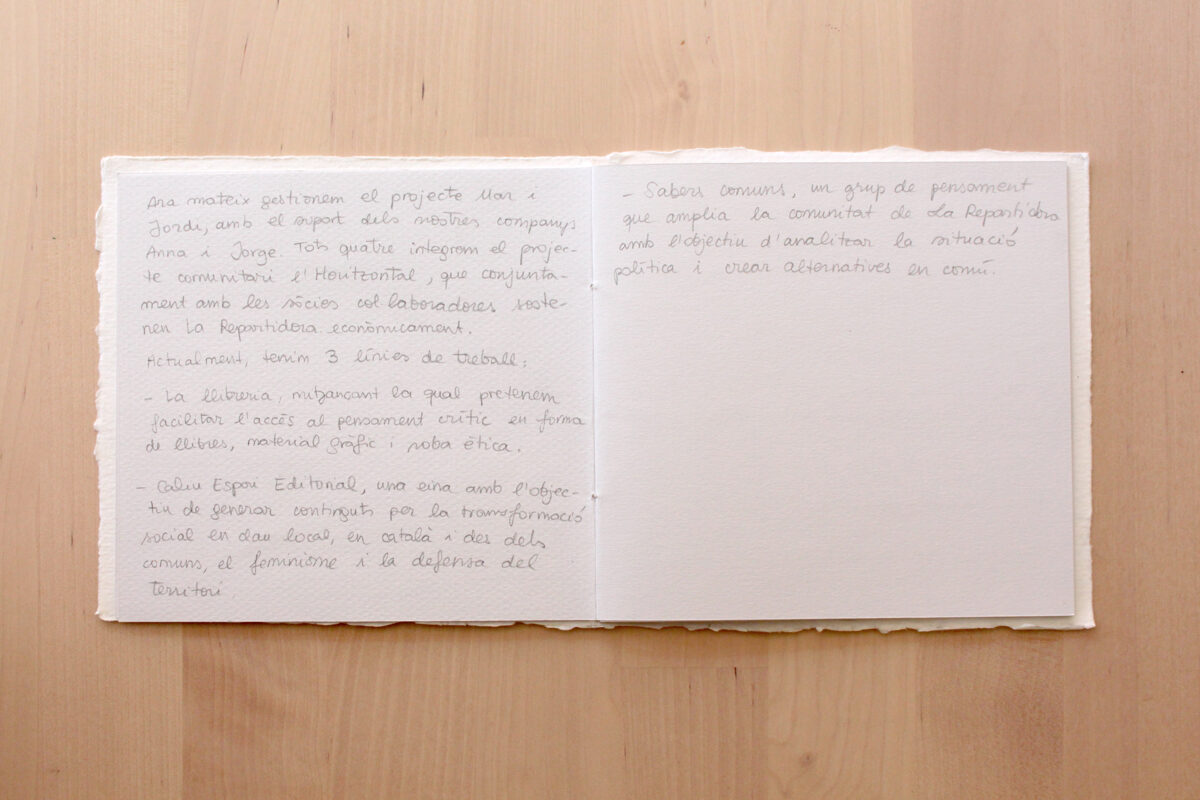 Ara mateix gestionem el projecte Mar i
Jordi, amb el suport dels nostres companys
Anna i Jorge. Tots quatre integrem el projec-
te comunitari l'Horitzontal, que conjunta-
ment amb les sòcies col·laboradores soste-
nen La Repartidora econòmicament.
Actualment, tenim 3 línies de treball:
- La llibreria, mitjançant la qual pretenem
facilitar l'accés al pensament crític en forma
de llibres, material gràfic i roba ètica.
- Caliu Espai Editorial, una eina amb l'objec-
tiu de generar continguts per la transformació
social en clau local, en català i des dels
comuns, el feminisme i la defensa del
territori.
- Sabers comuns, un grup de pensament
que amplia la comunitat de La Repartidora
amb l'objectiu d'analitzar la situació
política i crear alternatives en comú.